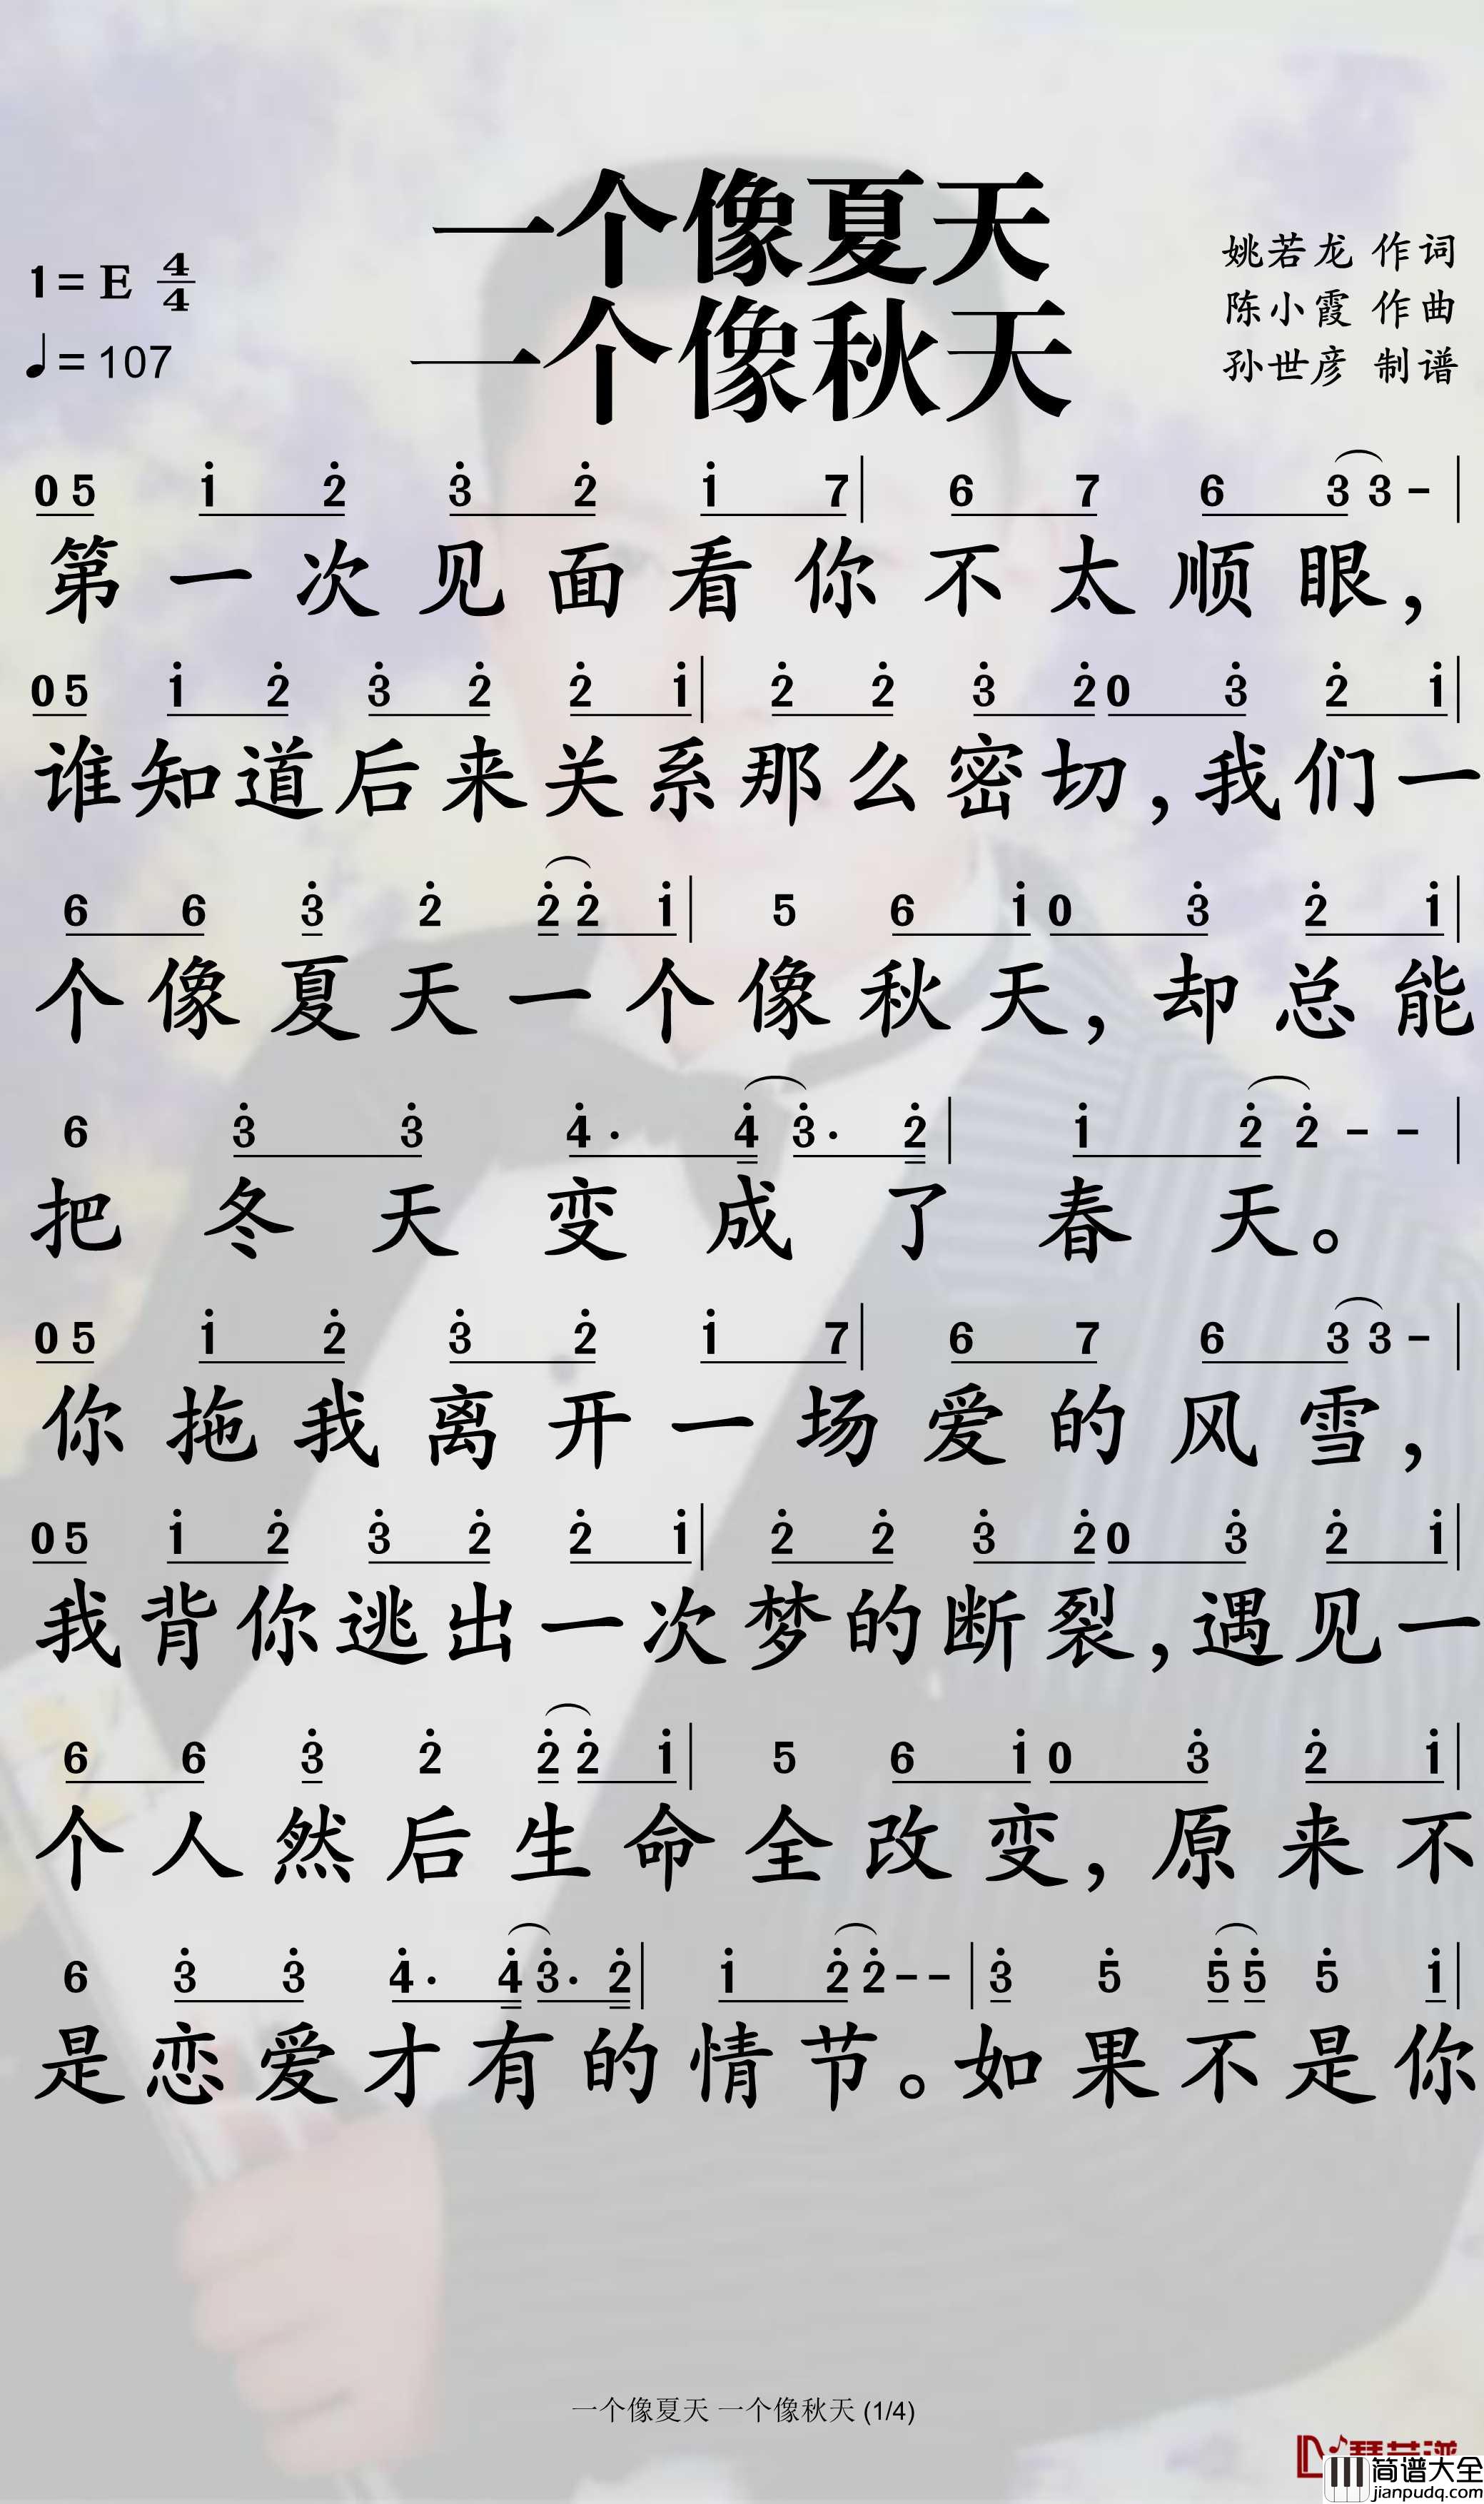 一个像夏天
一个像秋天
1=E 4/4
♩=107
姚若龙 作词
陈小霞 作曲
孙世彦 制谱
0 5 1̇ 2̇ 3̇ 2̇ 1̇ 7 | 6 7 6 3 3 - |
第一次见面看你不太顺眼，
0 5 1̇ 2̇ 3̇ 2̇ 2̇ 1̇ | 2̇ 2̇ 3̇ 2̇ 0 3̇ 2̇ 1̇ |
谁知道后来关系那么密切，我们一
6 6 3̇ 2̇ 2̇ 2̇ 1̇ | 5 6 1̇ 0 3̇ 2̇ 1̇ |
个像夏天一个像秋天，却总能
6 3̇ 3̇ 4̇· 4̇ 3̇· 2̇ | 1̇ 2̇ 2̇ - - |
把冬天变成了春天。
0 5 1̇ 2̇ 3̇ 2̇ 1̇ 7 | 6 7 6 3 3 - |
你拖我离开一场爱的风雪，
0 5 1̇ 2̇ 3̇ 2̇ 2̇ 1̇ | 2̇ 2̇ 3̇ 2̇ 0 3̇ 2̇ 1̇ |
我背你逃出一次梦的断裂，遇见一
6 6 3̇ 2̇ 2̇ 2̇ 1̇ | 5 6 1̇ 0 3̇ 2̇ 1̇ |
个人然后生命全改变，原来不
6 3̇ 3̇ 4̇· 4̇ 3̇· 2̇ | 1̇ 2̇ 2̇ - - | 3̇ 5̇ 5̇ 5̇ 5̇ 1̇ |
是恋爱才有的情节。如果不是你
一个像夏天 一个像秋天 (1/4)
简谱大全
jianpudq.com